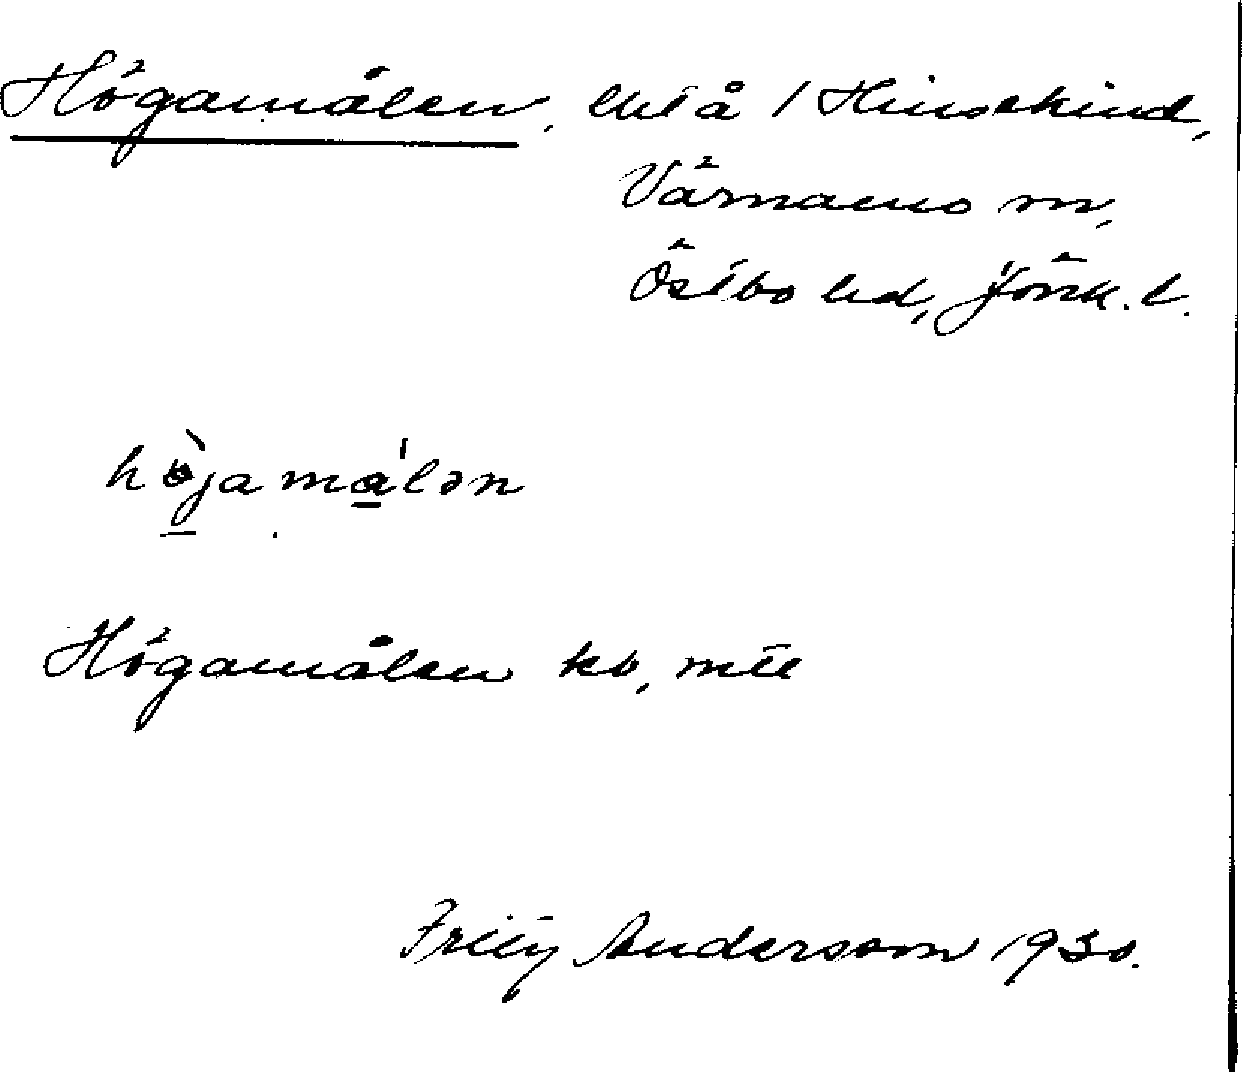 Högamålen, utå / Hinsekind,
Värnamo sn,
Östbo hd, Jönk. l.
höjamålən
Högamålen kb,
Andersson 1930.